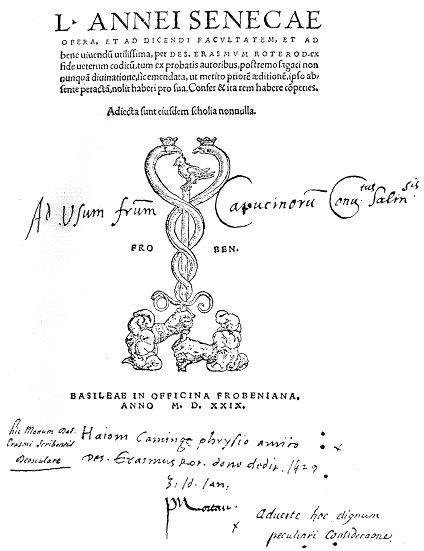 L· ANNEI SENECAE
OPERA, ET AD DICENDI FACVLTATEM, ET AD
bene uiuendũ utilissima, per DES. ERASMVM ROTEROD. ex
fide ueterum codicũ, tum ex probatis autoribus, postremo sagaci non
nunquã diuinatione, sic emendata, ut merito priorẽ æditionẽ, ipso ab-
sente peractã, nolit haberi pro sua. Confer & ita rem habere cõperies.
Adiecta sunt eiusdem scholia nonnulla.
Ad Usum frũm Capucinorũ Conv^tus Salin^sis
FRO BEN.
BASILEAE IN OFFICINA FROBENIANA,
ANNO M. D. XXIX.
hic Manum Des.
Erasmi Scribentis
Deosculare
Haioni Caminge phrysio amico
Des. Erasmus Rot. dono dedit. 1529
3. Id. Ian.
Adverte hoc dignum
peculiari Consideraone